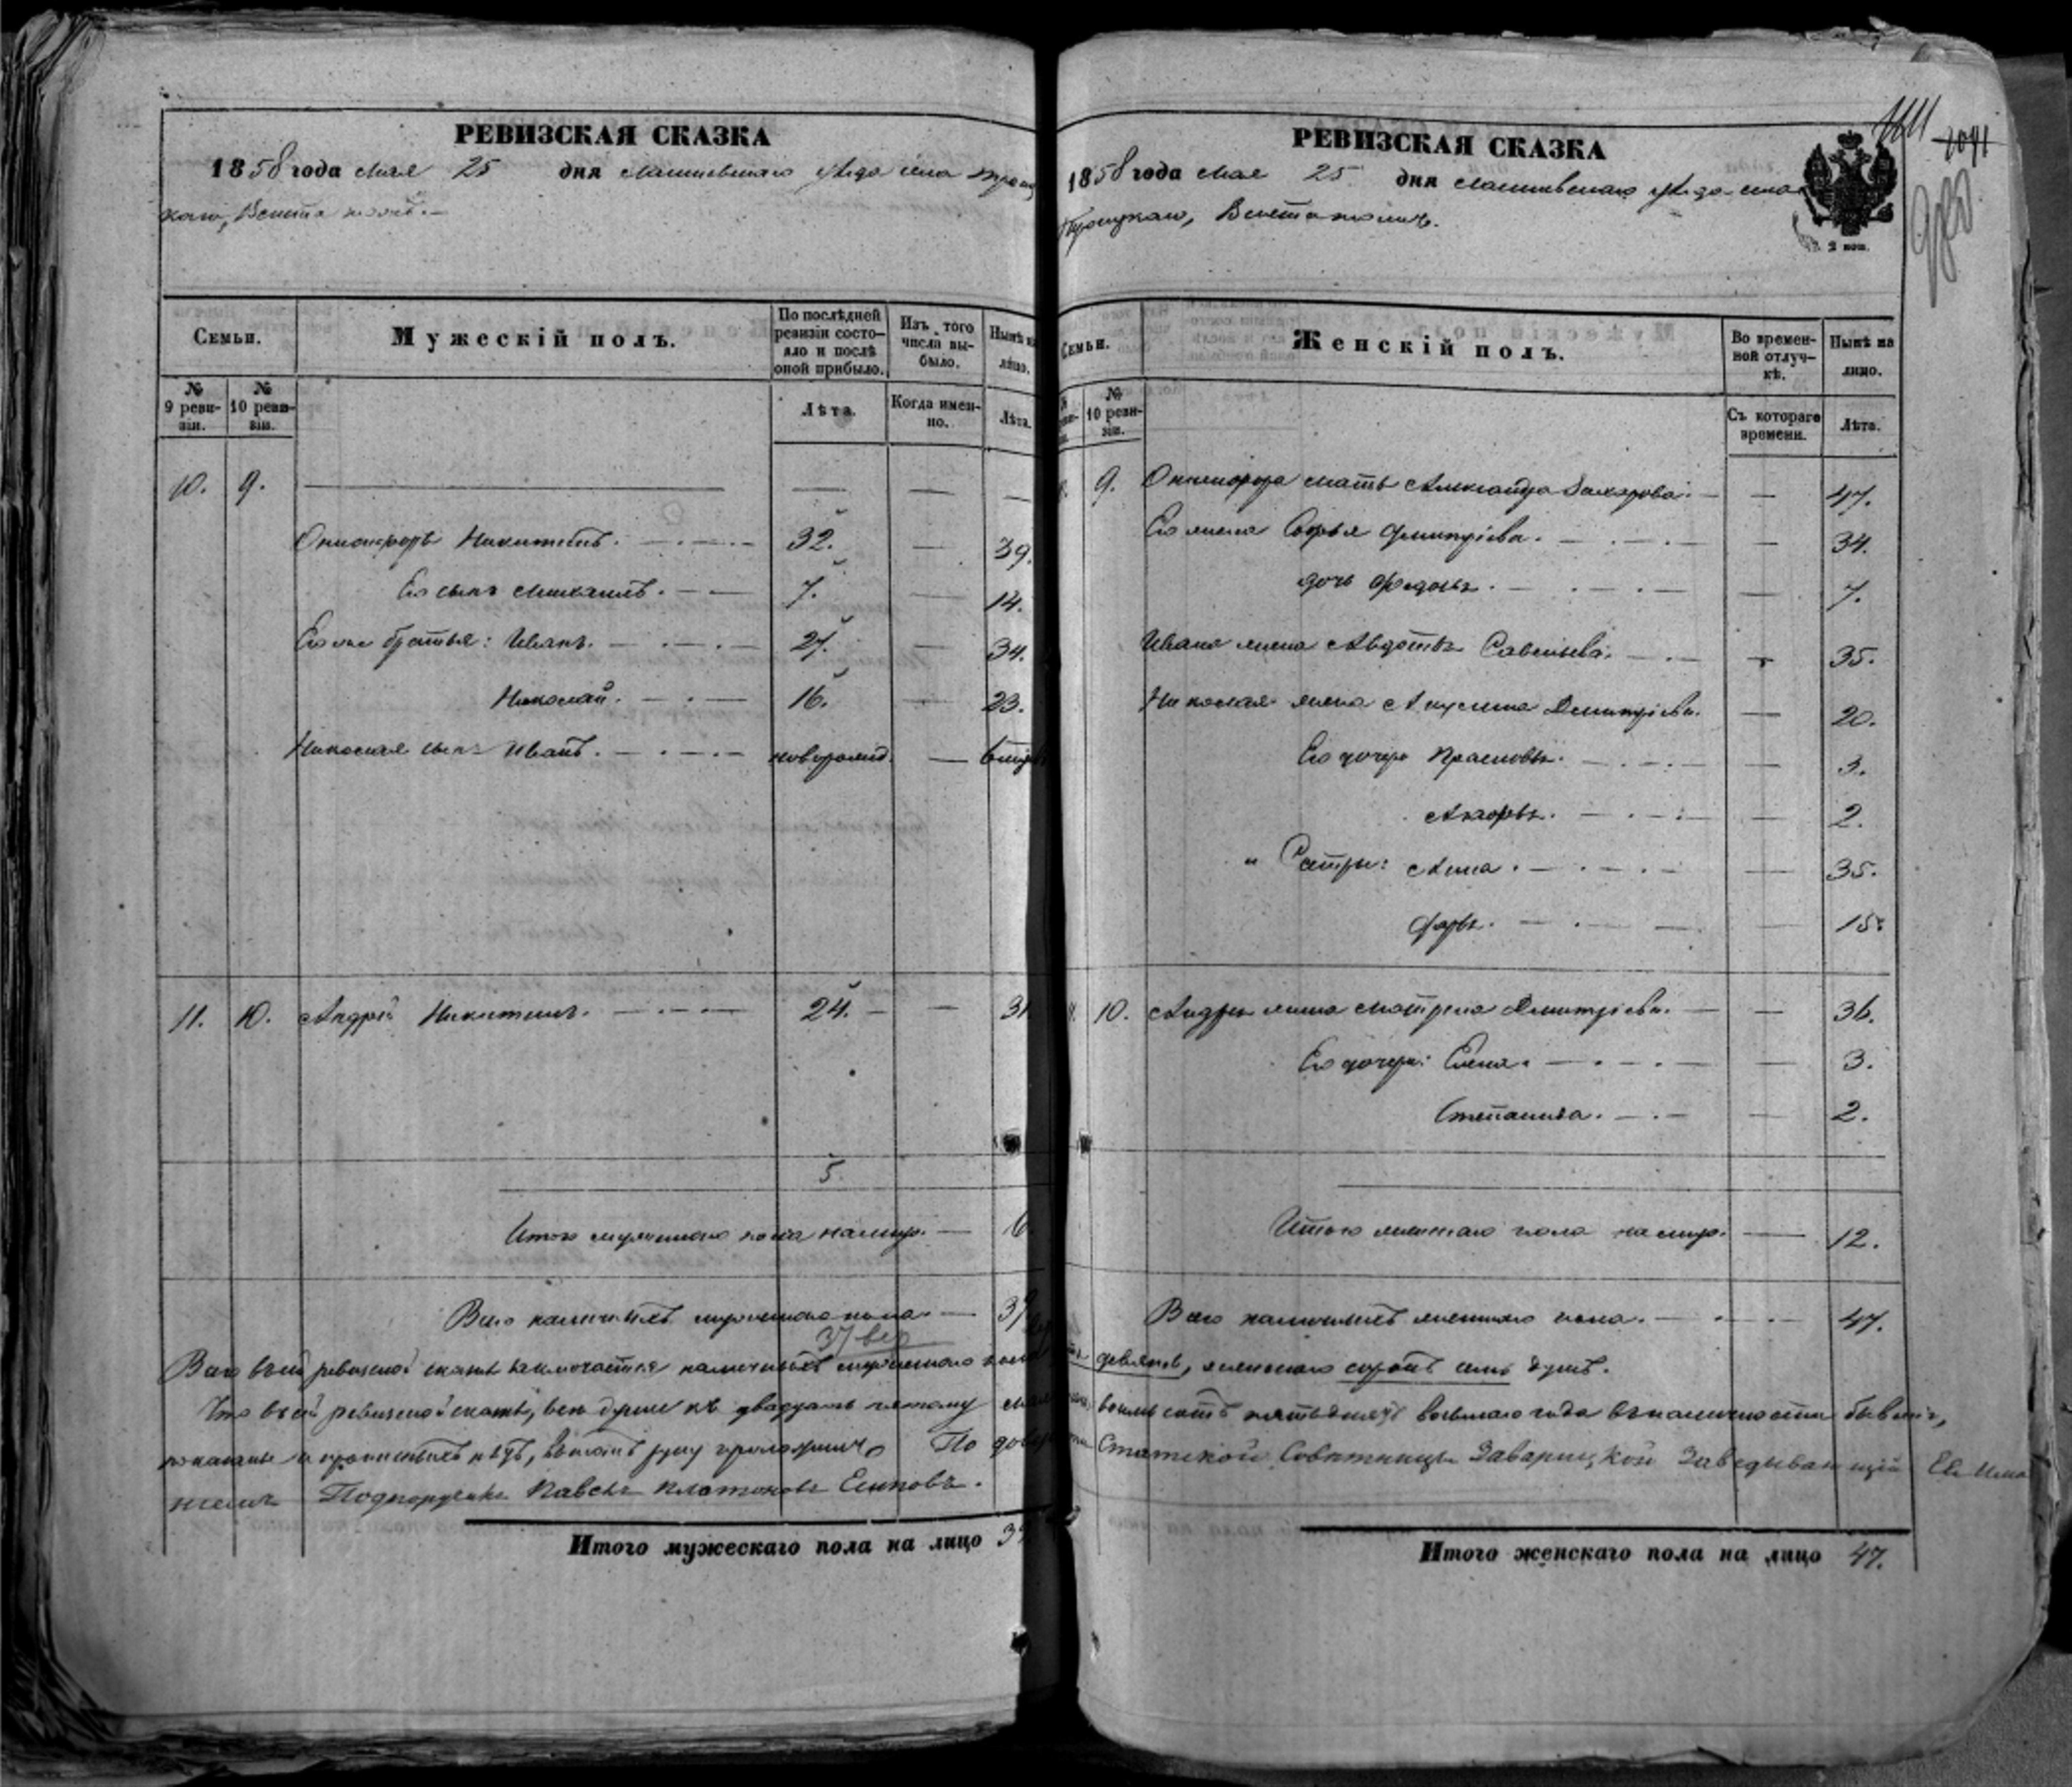 РЕВИЗСКАЯ СКАЗКА
1858 года Мая 25 дня Лаишевскаго уѣзда села Троиц
каго,
Семьи.
Мужескій полъ.
По послѣдней ревизіи состо-
яло и послѣ оной прибыло.
Изъ того числа вы-
было.
Нынѣ на лицо.
№ 9 реви-
зіи.
№ 10 реви-
зіи.
Лѣта.
Когда имен-
но.
Лѣта.
10. 9.
Онисифоръ Никитинъ. 32. 39.
Его сынъ Михаилъ. 7. 14.
Его же братья: Иванъ. 27. 34.
Николай. 16. 23.
Николая сынъ Иванъ. новорожд.
11. 10. Андрей Никитинъ. 24. 31
5.
Итого мужескаго пола налицо. 6
Всего наличныхъ мужескаго пола. 39
Всего въ сей ревизской сказкѣ заключается наличныхъ мужескаго пола
Что въ сей ревизской сказкѣ, всѣ души къ двадцать пятому мая
показаны и прописныхъ нѣтъ, въ томъ руку приложилъ По довѣр
ніемъ Подпоручикъ Павелъ Платоновъ Есиповъ.
Итого мужескаго пола на лицо 39
РЕВИЗСКАЯ СКАЗКА
1858 года Мая 25 дня Лаишевскаго уѣзда села
Троицкаго,
2 коп.
1041
Семьи.
Женскій полъ.
Во времен-
ной отлуч-
кѣ.
Нынѣ на лицо.
№ 10 реви-
зіи.
Съ котораго времени.
Лѣта.
9. Онисифора мать Александра Захарова. 47.
Его жена Софья Дмитріева. 34.
дочь Федосья. 7.
Ивана жена Авдотья Савельева. 35.
Николая жена Акулина Дмитріева. 20.
Его дочери Прасковья. 3.
2.
" Сестры: Анна. 35.
Дарья. 15.
10. Андрея жена Матрена Дмитріева. 36.
Его дочери: Елена. 3.
Степанида. 2.
Итого женскаго пола налицо. 12.
Всего наличныхъ женскаго пола. 47.
девять, женскаго сорокъ семь душъ.
восемьсотъ пятьдесятъ восьмаго года въ наличности бывшія,
Статской Совѣтницы Заварицкой Завѣдывающій Ея имѣ
Итого женскаго пола на лицо 47.